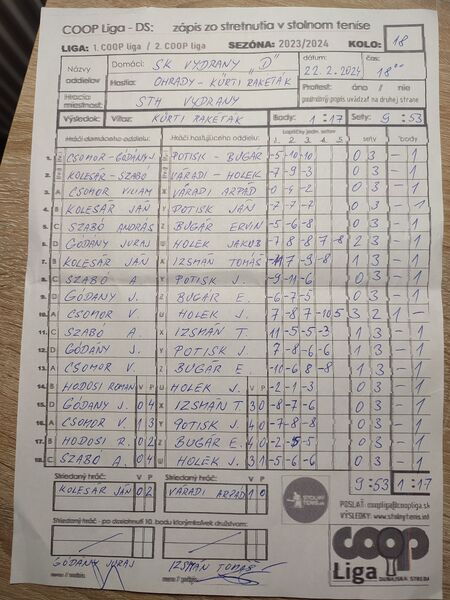 COOP Liga - DS: zápis zo stretnutia v stolnom tenise
LIGA: 1. COOP liga / 2. COOP liga SEZÓNA: 2023/2024 KOLO: 18
Názvy oddielov Domáci: SK VYDRANY "D" 22.2.2024 18°°
Hostia: OHRADY - KÜRTI RAKETÁK Protest: áno / nie
Hracia miestnosť: STH VYDRANY podrobný popis uvádzať na druhej strane
Výsledok: Víťaz: KÜRTI RAKETÁK Body: 1:17 Sety: 9:53
Hráči domáceho oddielu: Hráči hosťujúceho oddielu: Loptičky jedn. setov sety body
1. 2. 3. 4. 5.
1. CSOMOR - GÓDÁNY J. POTISK - BUGÁR -5 -10 -10 0 3 - 1
2. KOLESÁR - SZABÓ VÁRADI - HOLEK -7 -9 -3 0 3 - 1
3. A CSOMOR VILIAM X VÁRADI ARPÁD 0 -4 -2 0 3 - 1
4. B KOLESÁR JÁN Y POTISK JÁN -7 -7 -7 0 3 - 1
5. C SZABÓ ANDRÁS Z BUGÁR ERVIN -5 -6 -8 0 3 - 1
6. D GÓDÁNY JURAJ U HOLEK JAKUB -7 8 -8 7 -8 2 3 - 1
7. B KOLESÁR JÁN X IZSMÁN TOMÁŠ -11 7 -9 -8 1 3 - 1
8. C SZABÓ A. POTISK J. -9 -11 -6 0 3 - 1
9. D GÓDÁNY J. Z BUGÁR E. -6 -7 -5 0 3 - 1
10. A CSOMOR V. U HOLEK J. 7 -8 7 -10 5 3 2 1 -
11. C SZABÓ A. X IZSMÁN T. 11 -5 -5 -3 1 3 - 1
12. D GÓDÁNY J. Y POTISK J. 7 -8 -6 -6 1 3 - 1
13. A CSOMOR V. Z BUGÁR E -10 -6 8 -8 1 3 - 1
14. B HODOSI ROMAN V P U HOLEK J. V P -2 -1 -3 0 3 - 1
15. D GÓDÁNY J. 0 4 X IZSMÁN T. 3 0 -8 -7 -6 0 3 - 1
16. A CSOMOR V. 1 3 Y POTISK J. 4 0 -7 -8 -8 0 3 - 1
17. B HODOSI R. 0 2 Z BUGÁR E. 4 0 -2 -5 -5 0 3 - 1
18. C SZABÓ A. 0 4 U HOLEK J. 3 1 -5 -8 -6 0 3 - 1
Striedaný hráč: V P Striedaný hráč: V P 9:53 1:17
KOLESÁR JÁN 0 2 VÁRADI ARPÁD 1 0
STOLNÝ TENIS
POSLAŤ: coopliga@coopliga.sk
VÝSLEDKY: www.stolnytenis.info
Striedaný hráč - po dosiahnutí 10. bodu ktorýmkoľvek družstvom:
GÓDÁNY JURAJ IZSMÁN TOMÁŠ
meno / podpis meno / podpis
COOP Liga
DUNAJSKÁ STREDA